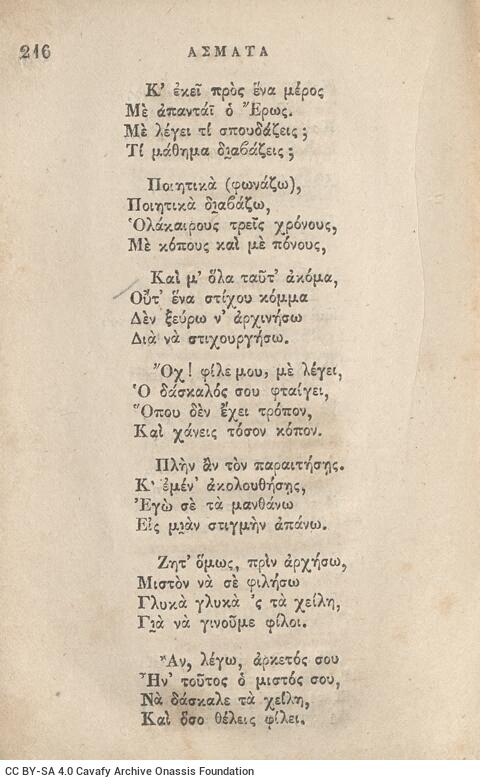 216
ΑΣΜΑΤΑ
Κ' ἐκεῖ πρὸς ἕνα μέρος
Μὲ ἀπαντάϊ ὁ Ἔρως.
Μὲ λέγει τί σπουδάζεις;
Τί μάθημα διαβάζεις;
Ποιητικὰ (φωνάζω),
Ποιητικὰ διαβάζω,
Ὁλάκαιρους τρεῖς χρόνους,
Μὲ κόπους καὶ μὲ πόνους,
Καὶ μ' ὅλα ταῦτ' ἀκόμα,
Οὔτ' ἕνα στίχου κόμμα
Δὲν ξεύρω ν' ἀρχινήσω
Διὰ νὰ στιχουργήσω.
Ὄχ! φίλε μου, μὲ λέγει,
Ὁ δάσκαλός σου φταίγει,
Ὅπου δὲν ἔχει τρόπον,
Καὶ χάνεις τόσον κόπον.
Πλὴν ἂν τὸν παραιτήσῃς.
Κ' ἐμέν' ἀκολουθήσῃς,
Ἐγὼ σὲ τὰ μανθάνω
Εἰς μιὰν στιγμὴν ἀπάνω.
Ζητ' ὅμως, πρὶν ἀρχήσω,
Μιστὸν νὰ σὲ φιλήσω
Γλυκὰ γλυκὰ 'ς τὰ χείλη,
Γιὰ νὰ γινοῦμε φίλοι.
Ἂν, λέγω, ἀρκετός σου
Ἦν' τοῦτος ὁ μιστός σου,
Νὰ δάσκαλε τὰ χείλη,
Καὶ ὅσο θέλεις φίλει.
CC BY-SA 4.0 Cavafy Archive Onassis Foundation